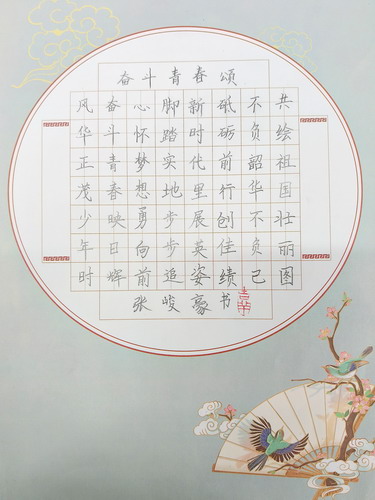 奋斗青春颂
风华正茂少年时
奋斗青春映日辉
心怀梦想勇向前
脚踏实地步步追
新时代里展英姿
砥砺前行创佳绩
不负韶华不负己
共绘祖国壮丽图
张峻豪书